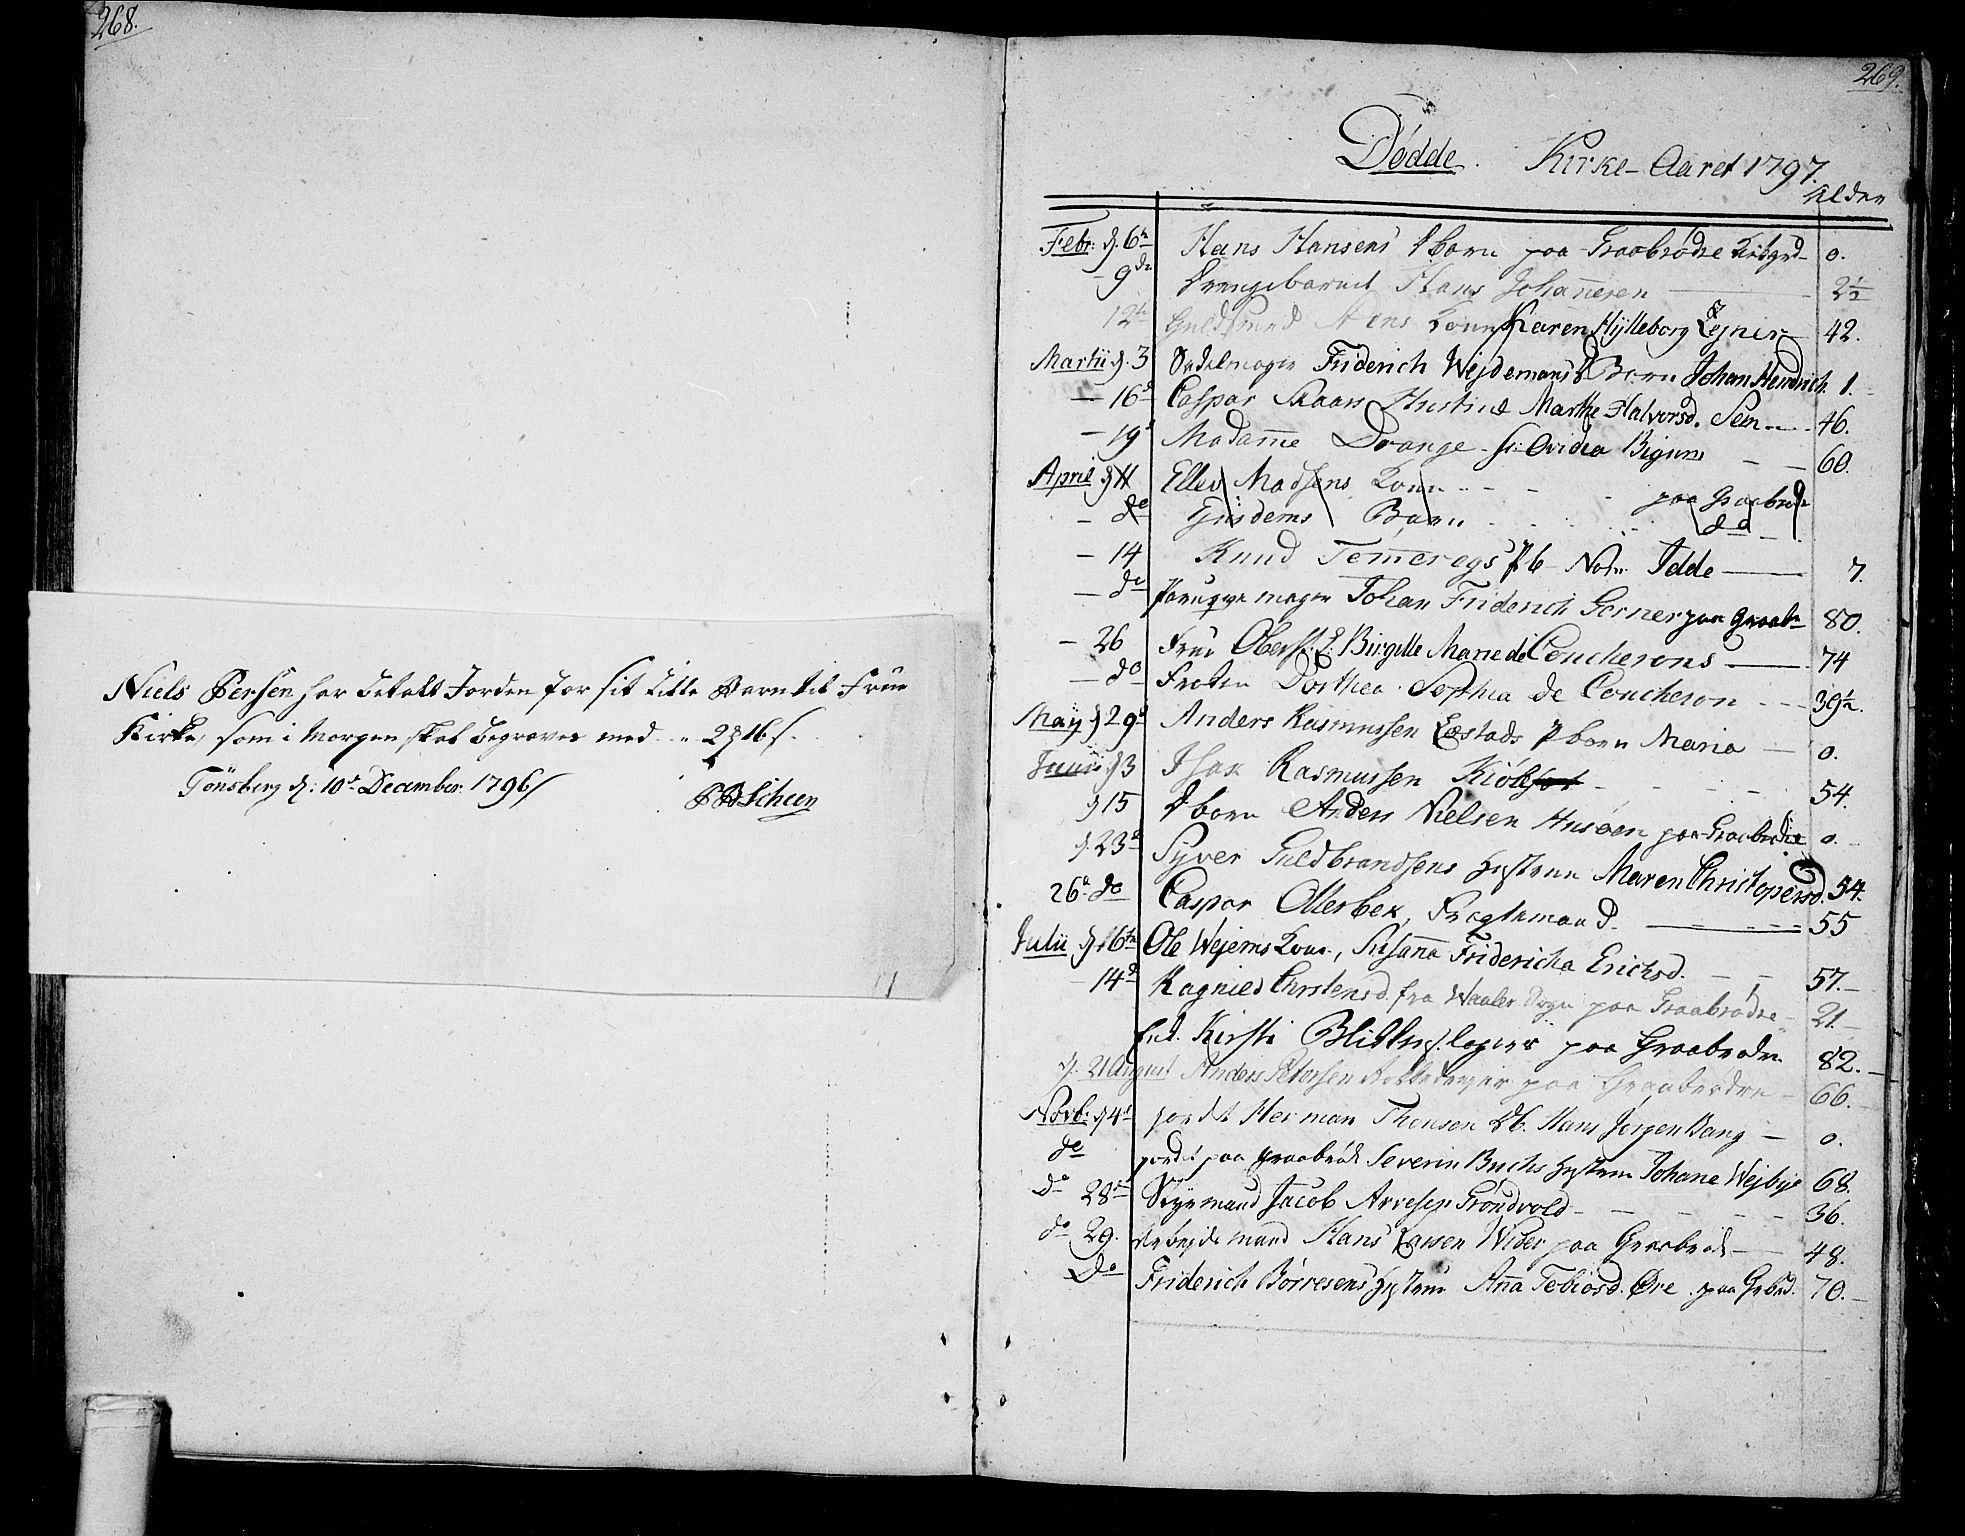 268.
Niels Persen har betalt Jorden for sit Lille Barn til Frue
Kirke, som i Morgen skal begraves med 2 16 s.
Tönsberg d: 10d December 1796
Scheen
269.
Dödde. Kirke-Aaret 1797.
Alder
Febr: d. 6te Hans Hansens Pbarn paa Graabrödre 0.
- 9de Drengebarnet Hans Johannesen 2½
12te Guldsmed Kone Karen Hylleborg 42.
Martii d. 3 Sadelmager Friderich Wejdemans Barn Johan Hendrich 1.
- 16d Caspar Skaars Hustrue Marthe Halvorsd. Sem 46.
- 19d Madamme Drange Ovidia Bigum 60.
April d. 11 Ellev Madsens Kone paa Graabrödr
- do Barn do
- 14 Knud Pb Idde 7.
- do Paruqve mager Johan Friderich Gerner paa Graabr 80.
- 26 Frue Oberst: L: Birgitte Marie de Coucherons 74
- do Frøken Dorthea Sophia de Coucheron 39½.
Maij d 29d Anders Rasmussen Pbarn Maria 0.
Junii d 3 Isak Rasmussen 54.
d 15 Pbarn Anders Nielsen Husöen paa Graabrödre 0.
d. 23d Syver Guldbrandsens Hustrue Maren Christophersd. 54.
26d do Caspar Ollerbek, Fragtemand. 55
Julii d 6te Ole Wejems Kone, Susanna Fridericha Erichsd. 57.
14d Ragnild Christensd. fra Waaler Sogn paa Graabrödre 21.
Enk. Kirsti paa Graabrödre 82.
d. 21 August Anders Petersen paa Graabrödre 66.
Novb. d 4d jordet Herman Thomsen Hans Jörgen Bang 0.
do jordet paa Graabröd Severin Buchs Hustrue Johane Wejbye 68.
do 28d Styrmand Jacob Arvesen Gröndvold 36.
do 29. Arbejdsmand Hans Larsen paa Graabröd 48.
Do Friderich Börresens Hustrue Anna Tobiasd. Öre paa Grbröd. 70.